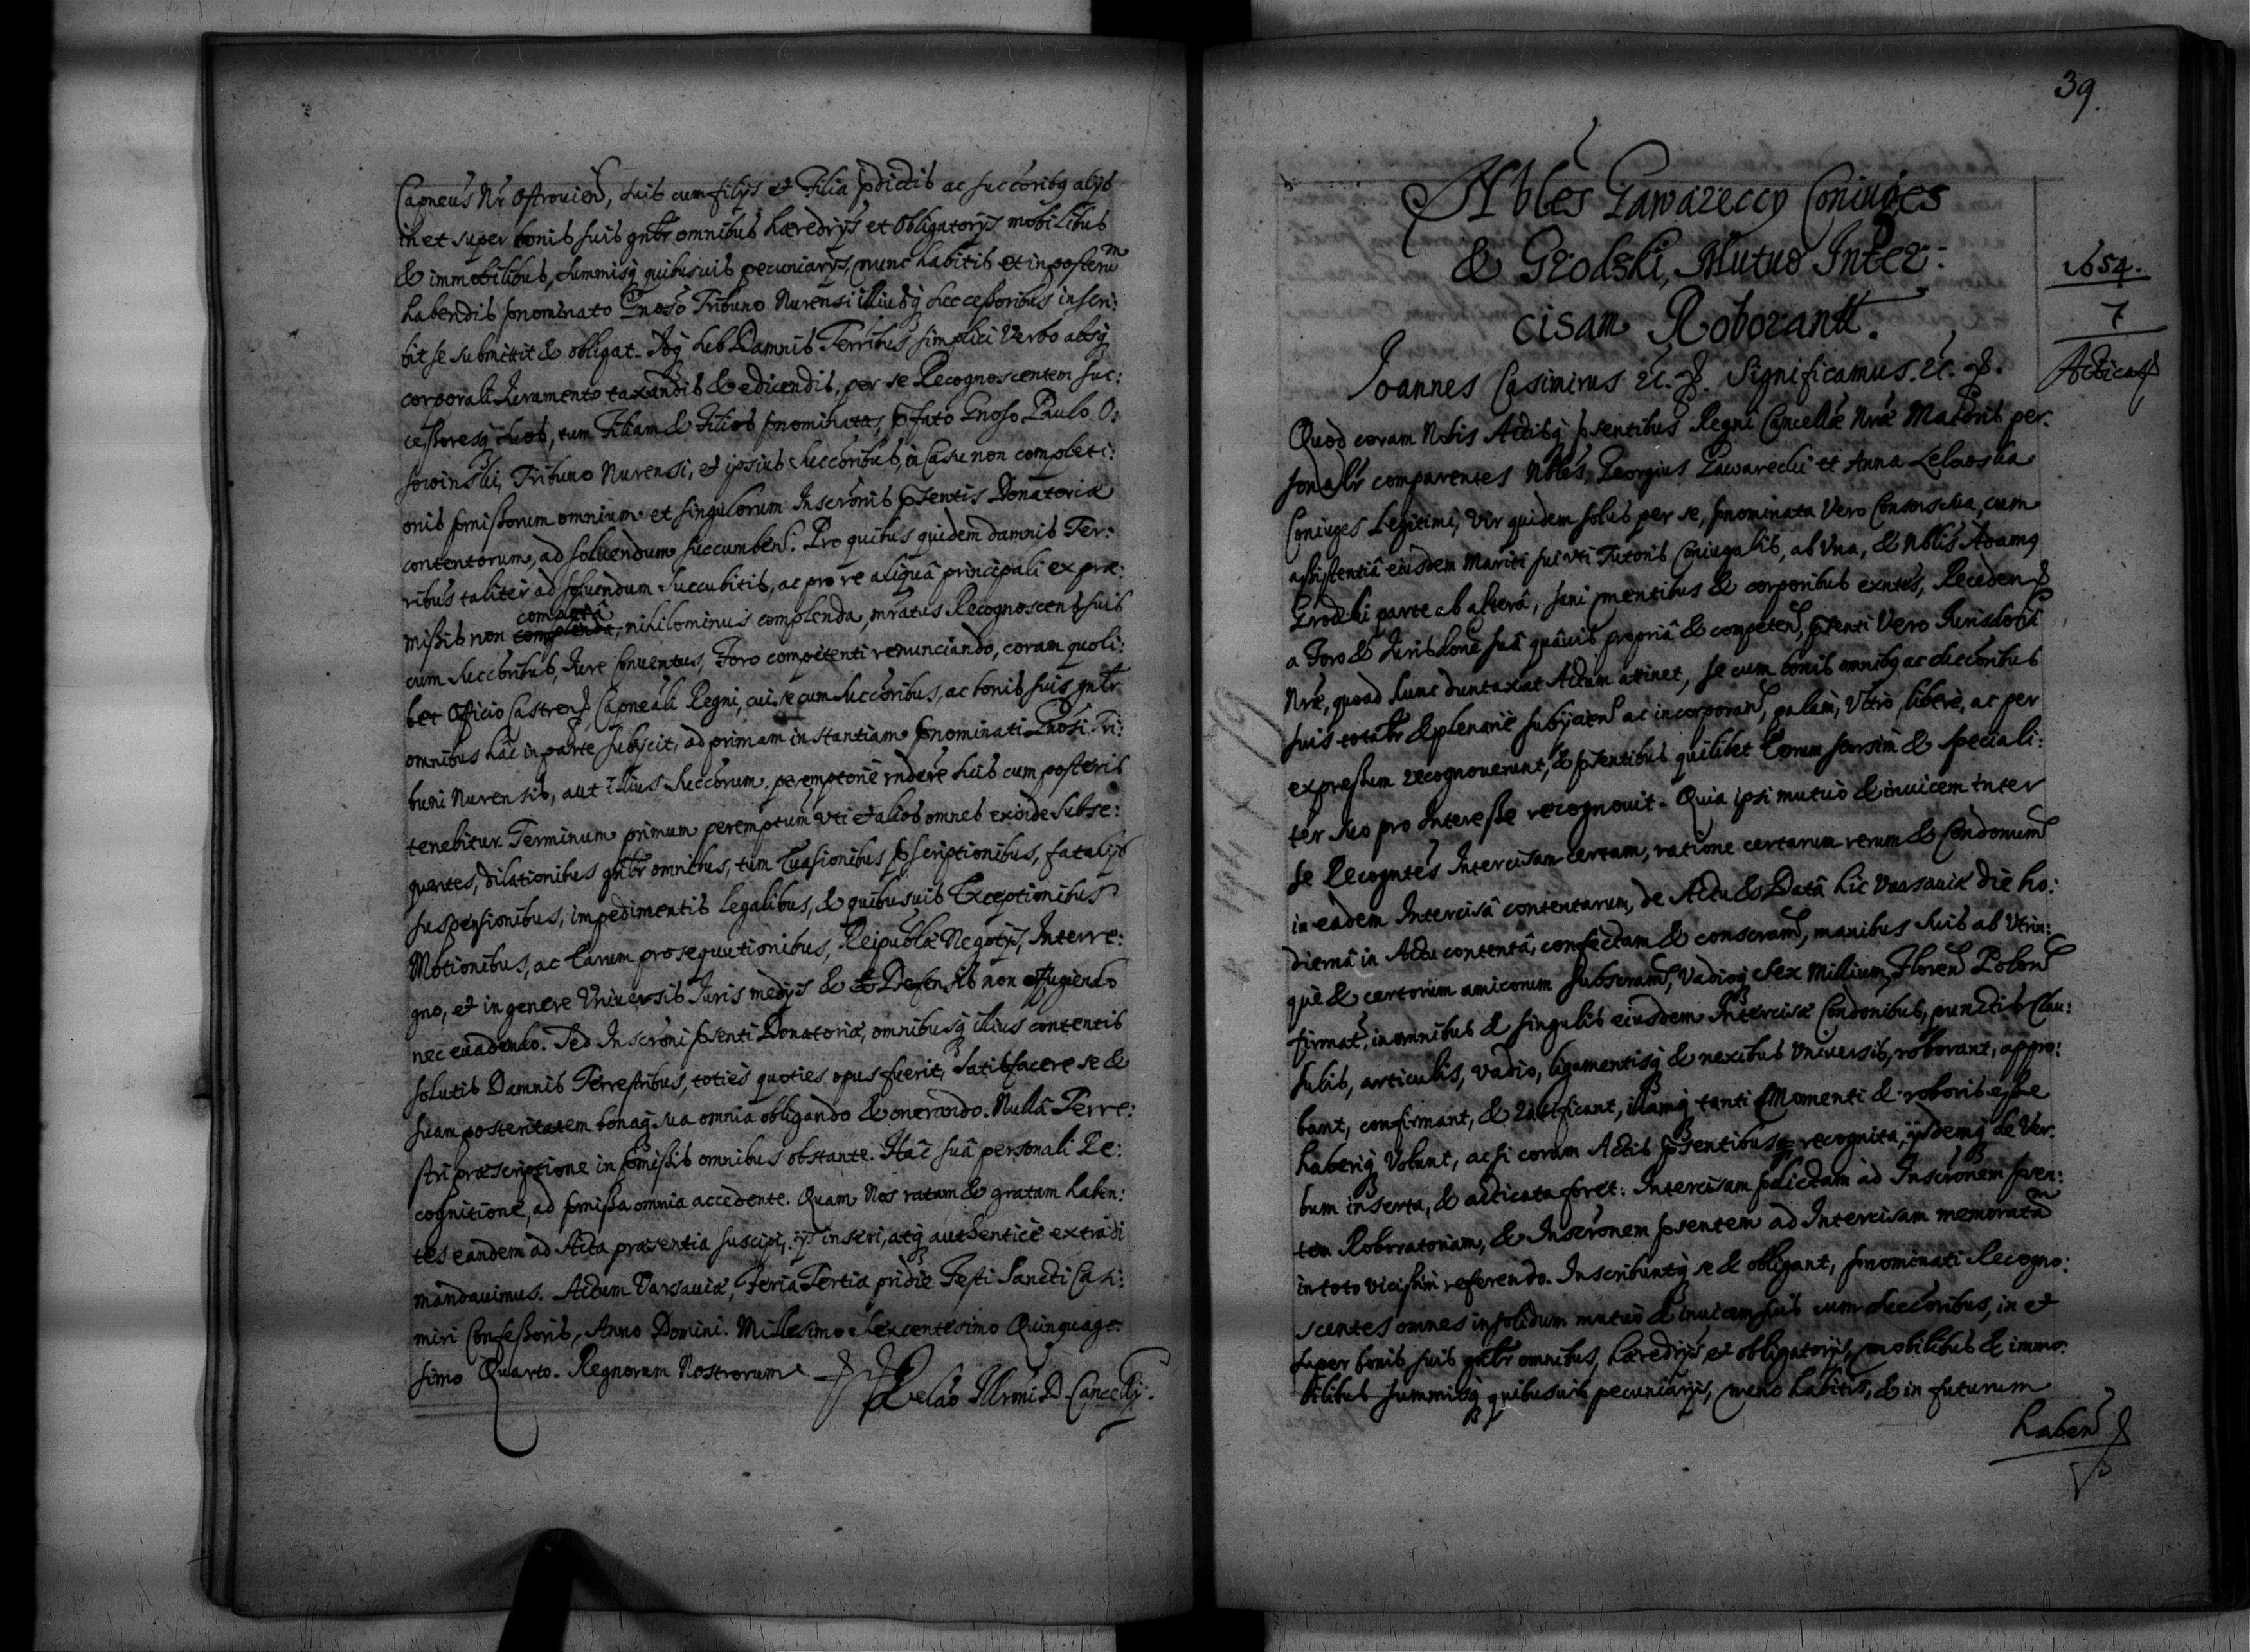 Capneus Nr Ostrouien, suis cum filijs et Filia pdictis ac succoribq alijs
in et super bonis suis gnlr omnibus hæredrijs et obligatorijs mobilibus
& immobilibus, summisq quibusuis pecuniarijs, nunc habitis et in posterum
habendis pnominato Gnoso Tribuno Nurensi illiusq successoribus inscri:
bit se submittit & obligat. Idq sub Damnis Terribus simplici Verbo absq
corporali Iuramento taxandis & edicendis, per se Recognoscentem suc:
cessoresq suos, tum Filiam & Filios pnominatos, pfato Gnoso Paulo O:
sowinski, Tribuno Nurensi, et ipsius succoribus, in Casu non completi:
onis pmissorum omnium et singulorum Inscronis psentis Donatoriæ
contentorum, ad soluendum succumben. Pro quibus quidem damnis Ter:
ribus taliter ad soluendum succubitis, ac pro re aliquâ principali ex præ:
missis non completâ complenda, nihilominus complenda, mratus Recognoscens suis
cum succoribus, Iure conuentus, Foro competenti renunciando, coram quoli:
bet Officio Castren Capneali Regni, cui se cum succoribus, ac bonis suis gnlr
omnibus hac in parte subijcit, ad primam instantiam pnominati Gnosi Tri:
buni Nurensis, aut illius succorum, peremptorie rndere suis cum posteris
tenebitur. Terminum primum peremptum Vti et alios omnes exinde subse:
quentes, dilationibus gnlr omnibus, tum Euasionibus pscriptionibus, fatalijs
suspensionibus, impedimentis legalibus, & quibusuis Exceptionibus
Motionibus, ac Earum prosequutionibus, Reipublæ Negotijs, Interre:
gno, et in genere Vniuersis Iuris medijs & Defensis non effugiendo
nec euadendo. Sed Inscroni psenti Donatoriæ, omnibusq illius contentis
solutis Damnis Terrestribus, toties quoties opus fuerit, satisfacere se &
suam posteritatem bonaq sua omnia obligando & onerando. Nullâ Terre:
stri præscriptione in pmissis omnibus obstante. Hac suâ personali Re:
cognitione, ad pmissa omnia accedente. Quam Nos ratam & gratam haben:
tes eandem ad Acta præsentia suscipi, ijs inseri, atq authenticè extradi
mandauimus. Actum Varsauiæ, Feria Tertia pridie Festi Sancti Casi:
miri Confessoris, Anno Domini. Millesimo sexcentesimo Quinquage:
simo Quarto. Regnorum Nostrorum
Relao Illrmi D. Cancellrij.
39.
Nbles Gawareccy Coniuges
& Grodski, Mutuo Inter:
cisam Roborant.
1654.
7
Adticat
Joannes Casimirus &c. Significamus. &c.
Quod coram Nobis Actibq psentibus Regni Cancellæ Nræ Maioris per:
sonalr comparentes Nbles, Georgius Gawarecki et Anna Lelowska
Coniuges Legitimi, Vir quidem solus per se, pnominata Vero Consors sua, cum
assistentiâ eiusdem Mariti sui vti Tutoris Coniugalis, ab vna, & Nblis Adamq
Grodzki parte ab alterâ, sani mentibus & corporibus exntes, Receden
a Foro & Iurisdone suâ quâuis propriâ & competen, psenti Vero Iurisdoni
Nræ, quoad hunc duntaxat Actum attinet, se cum bonis omnibq ac succoribus
suis totalr & plenariè subijcien ac incorporan, palàm, Vltrò, liberè, ac per
expressum recognouerunt, & psentibus quilibet Eorum seorsim & speciali:
ter suo pro Interesse recognouit. Quia ipsi mutuò & inuicem inter
se Recogntes Intercisam certam, ratione certarum rerum & Condonum
in eadem Intercisâ contentarum, de Actu & Datâ hic Varsauiæ die ho:
diernâ in Actu contentâ, confectam & conscram, manibus suis ab Vtrin:
què & certorum amicorum subscram, Vadioq Sex Millium Floren Polon
firmat, in omnibus & singulis eiusdem Intercisæ Condonibus, punctis Clau:
sulis, articulis, vadio, ligamentisq & nexibus Vniuersis, roborant, appro:
bant, confirmant, & ratificant, illamq tanti Momenti & roboris esse
haberiq Volunt, ac si coram Actis psentibus recognita, ijsdemq de Ver:
bum inserta, & acticata foret: Intercisam pdictam ad Inscronem psen:
tem Roboratoriam, & Inscronem psentem ad Intercisam memoratam
in toto vicissim referendo. Inscribuntq se & obligant, pnominati Recogno:
scentes omnes in solidum mutuò & inuicem suis cum succoribus, in et
super bonis suis gnlr omnibus, hæredrijs et obligatorijs, mobilibus & immo:
bilibus summisq quibusuis pecuniarijs, nunc habitis, & in futurum
haben